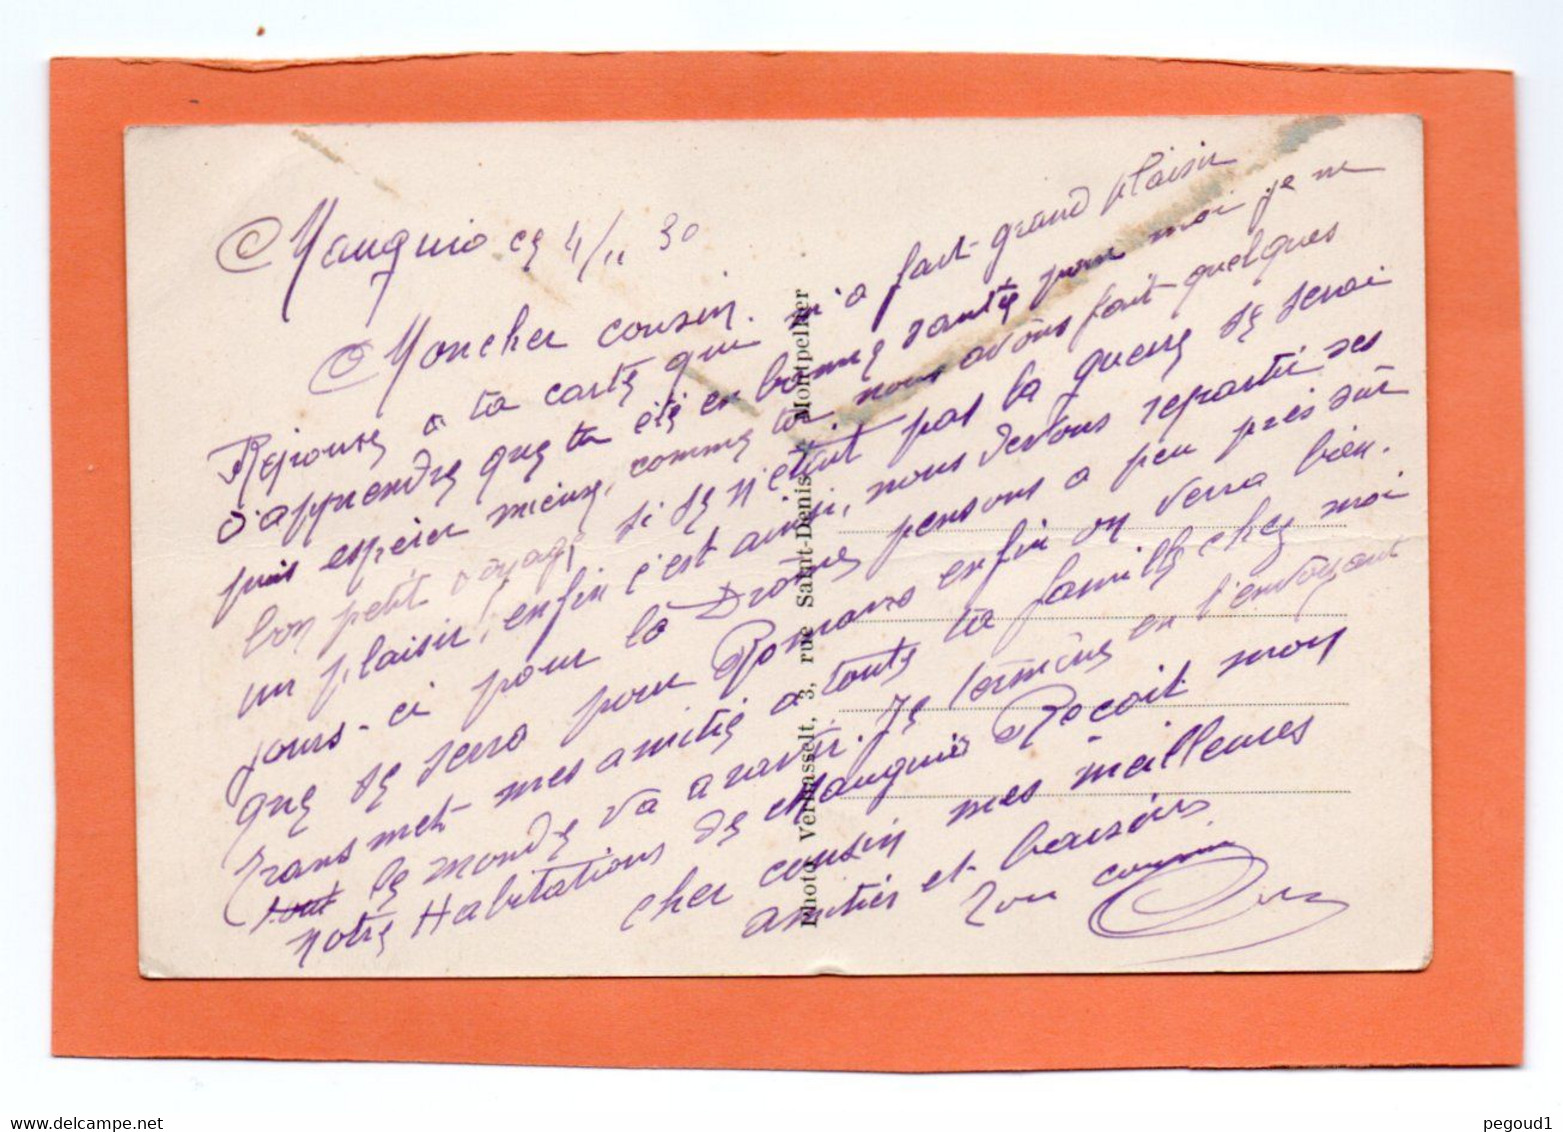 Mauguio ce 4/11 30
Moncher cousin.
Réponse a ta carte qui m'a fait grand plaisir
d'apprendre que tu été en bonne santé pour moi je ne
puis espérer mieux, comme tu nous avons fait quelques
bon petit voyage, si se n'etait pas la guerre se serai
un plaisir, enfin c'est ainsi, nous devons repartir ses
jours-ci pour la Drôme, pensons a peu près sûr
que se sera pour Romans enfin on verra bien.
Transmet mes amitié a toute ta famille chez moi
tout le monde va a ravir. Je termine en t'envoyant
notre Habitations de Mauguio Reçoit mon
cher cousin mes meilleures
amitiés et baisers
Ton cousin
Photo Vernasselt, 3, rue Saint-Denis - Montpellier
pegoud1